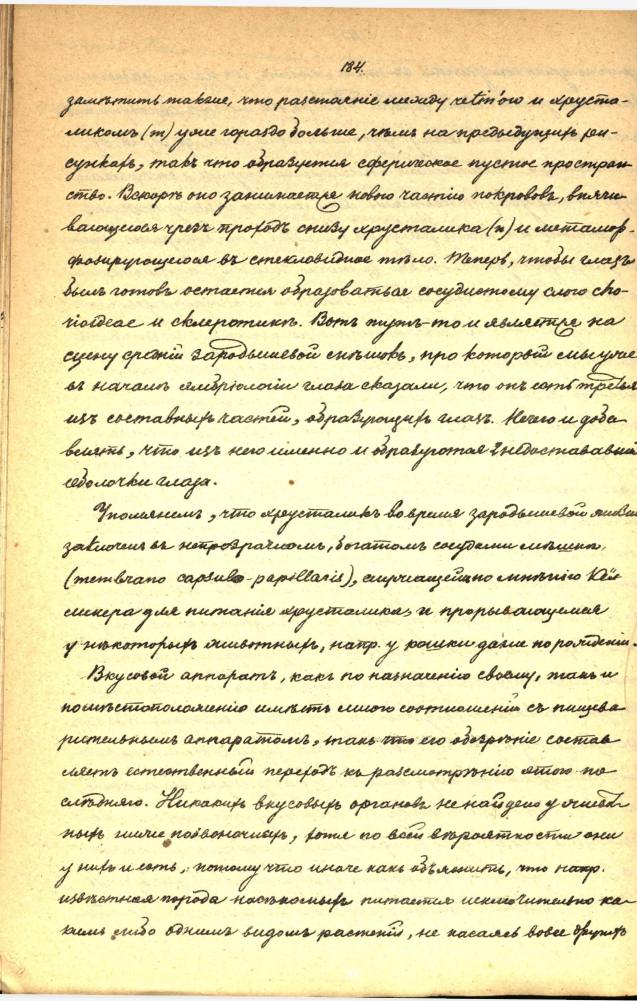 184.
замѣтить также, что разстояніе между retin'ою и хруста-
ликомъ (m) уже гораздо больше, чѣмъ на предыдущихъ ри-
сункахъ, такъ что образуется сферическое пустое простран-
ство. Вскорѣ оно занимается новою частію покрововъ, впячи-
вающеюся чрезъ проходъ снизу хрусталика (n) и метамор-
фозирующеюся въ стекловидное тѣло. Теперь, чтобы глазъ
былъ готовъ остается образоваться сосудистому слою cho-
rioideae и склеротикѣ. Вотъ тутъ-то и является на
сцену средній зародышевой листокъ, про который мы уже
въ началѣ эмбріологіи глаза сказали, что онъ есть третья
изъ составныхъ частей, образующихъ глазъ. Нечего и доба
влять, что изъ него именно и образуются 2 недостававшія
оболочки глаза.
Упомянемъ, что хрусталикъ во время зародышевой жизни
заключенъ въ непрозрачномъ, богатомъ сосудами мѣшкѣ,
(membrana capsulo-papillaris), служащей по мнѣнію Кёл
ликера для питанія хрусталика, и прорывающемся
у нѣкоторыхъ животныхъ, напр. у кошки даже по рожденіи.
Вкусовой аппаратъ, какъ по назначенію своему, такъ и
по мѣстоположенію имѣетъ много соотношеній съ пищева
рительнымъ аппаратомъ, такъ что его обозрѣніе состав
ляетъ естественный переходъ къ разсмотрѣнію этого по
слѣдняго. Никакихъ вкусовыхъ органовъ не найдено у живот-
ныхъ ниже позвоночныхъ, хотя по всей вѣроятности они
у нихъ и есть, потому что иначе какъ объяснить, что напр.
извѣстная порода насѣкомыхъ питается исключительно ка-
кимъ либо однимъ видомъ растеній, не касаясь вовсе другихъ